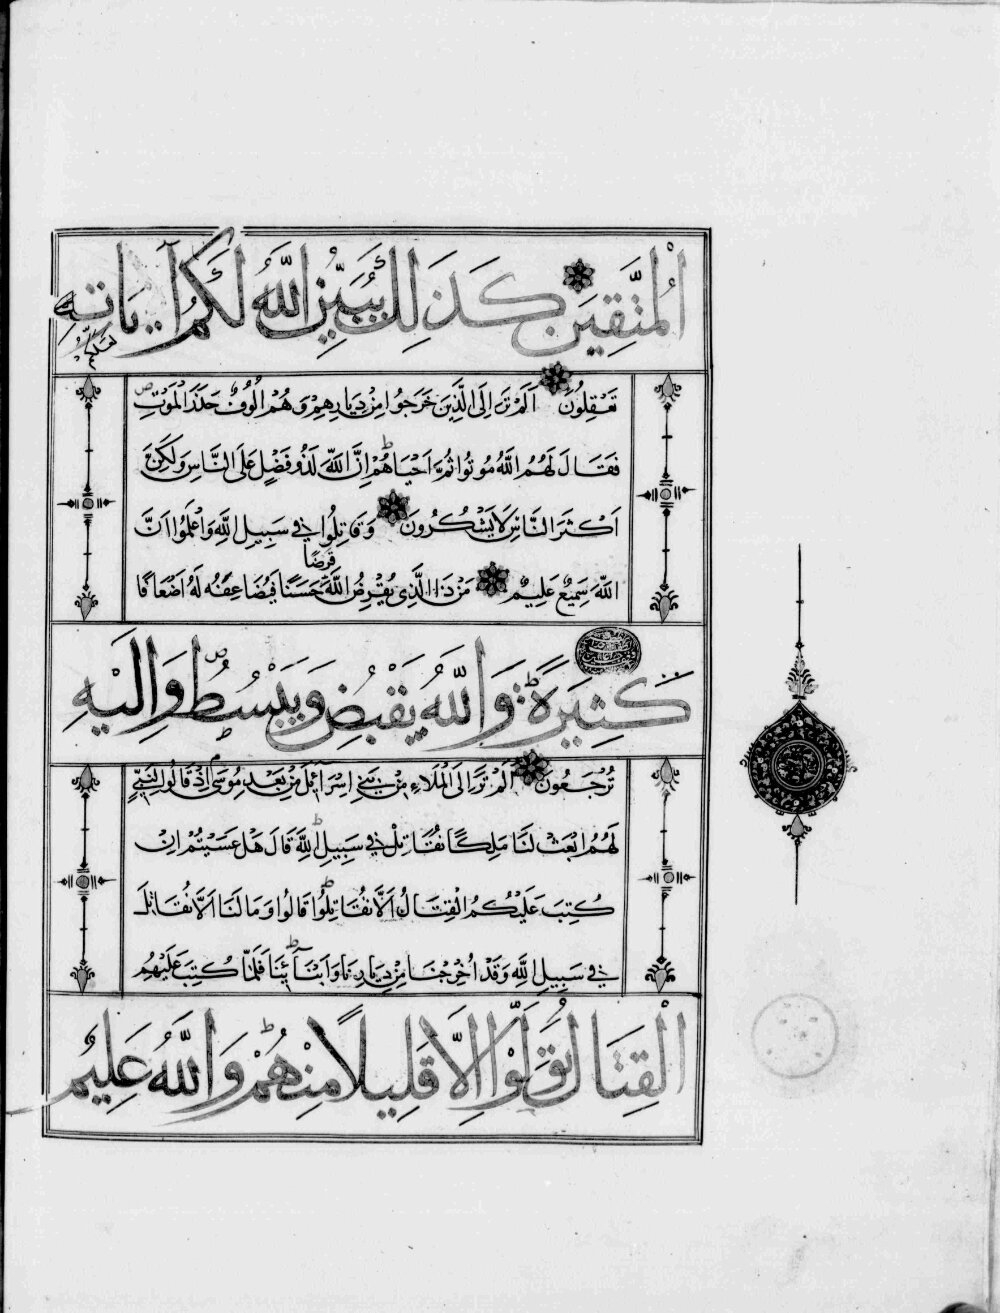 الْمُتَّقِينَ كَذَلِكَ يُبَيِّنُ اللَّهُ لَكُمْ آيَاتِهِ
لَعَلَّكُمْ
تَعْقِلُونَ اَلَمْ تَرَ اِلَى الَّذِينَ خَرَجُوا مِنْ دِيَارِهِمْ وَهُمْ اُلُوفٌ حَذَرَ الْمَوْتِ
فَقَالَ لَهُمُ اللَّهُ مُوتُوا ثُمَّ اَحْيَاهُمْ اِنَّ اللَّهَ لَذُو فَضْلٍ عَلَى النَّاسِ وَلَكِنَّ
اَكْثَرَ النَّاسِ لَا يَشْكُرُونَ وَقَاتِلُوا فِي سَبِيلِ اللَّهِ وَاعْلَمُوا اَنَّ
قَرْضًا
اللَّهَ سَمِيعٌ عَلِيمٌ مَنْ ذَا الَّذِي يُقْرِضُ اللَّهَ حَسَنًا فَيُضَاعِفَهُ لَهُ اَضْعَافًا
كَثِيرَةً وَاللَّهُ يَقْبِضُ وَيَبْسُطُ وَاِلَيْهِ
تُرْجَعُونَ اَلَمْ تَرَ اِلَى الْمَلَاءِ مِنْ بَنِي اِسْرَآئِلَ مِنْ بَعْدِ مُوسَى اِذْ قَالُوا لِنَبِيٍّ
لَهُمُ ابْعَثْ لَنَا مَلِكًا نُقَاتِلْ فِي سَبِيلِ اللَّهِ قَالَ هَلْ عَسَيْتُمْ اِنْ
كُتِبَ عَلَيْكُمُ الْقِتَالُ اَلَّا تُقَاتِلُوا قَالُوا وَمَا لَنَا اَلَّا نُقَاتِلَ
فِي سَبِيلِ اللَّهِ وَقَدْ اُخْرِجْنَا مِنْ دِيَارِنَا وَاَبْنَآئِنَا فَلَمَّا كُتِبَ عَلَيْهِمُ
الْقِتَالُ تَوَلَّوْا اِلَّا قَلِيلًا مِنْهُمْ وَاللَّهُ عَلِيمٌ